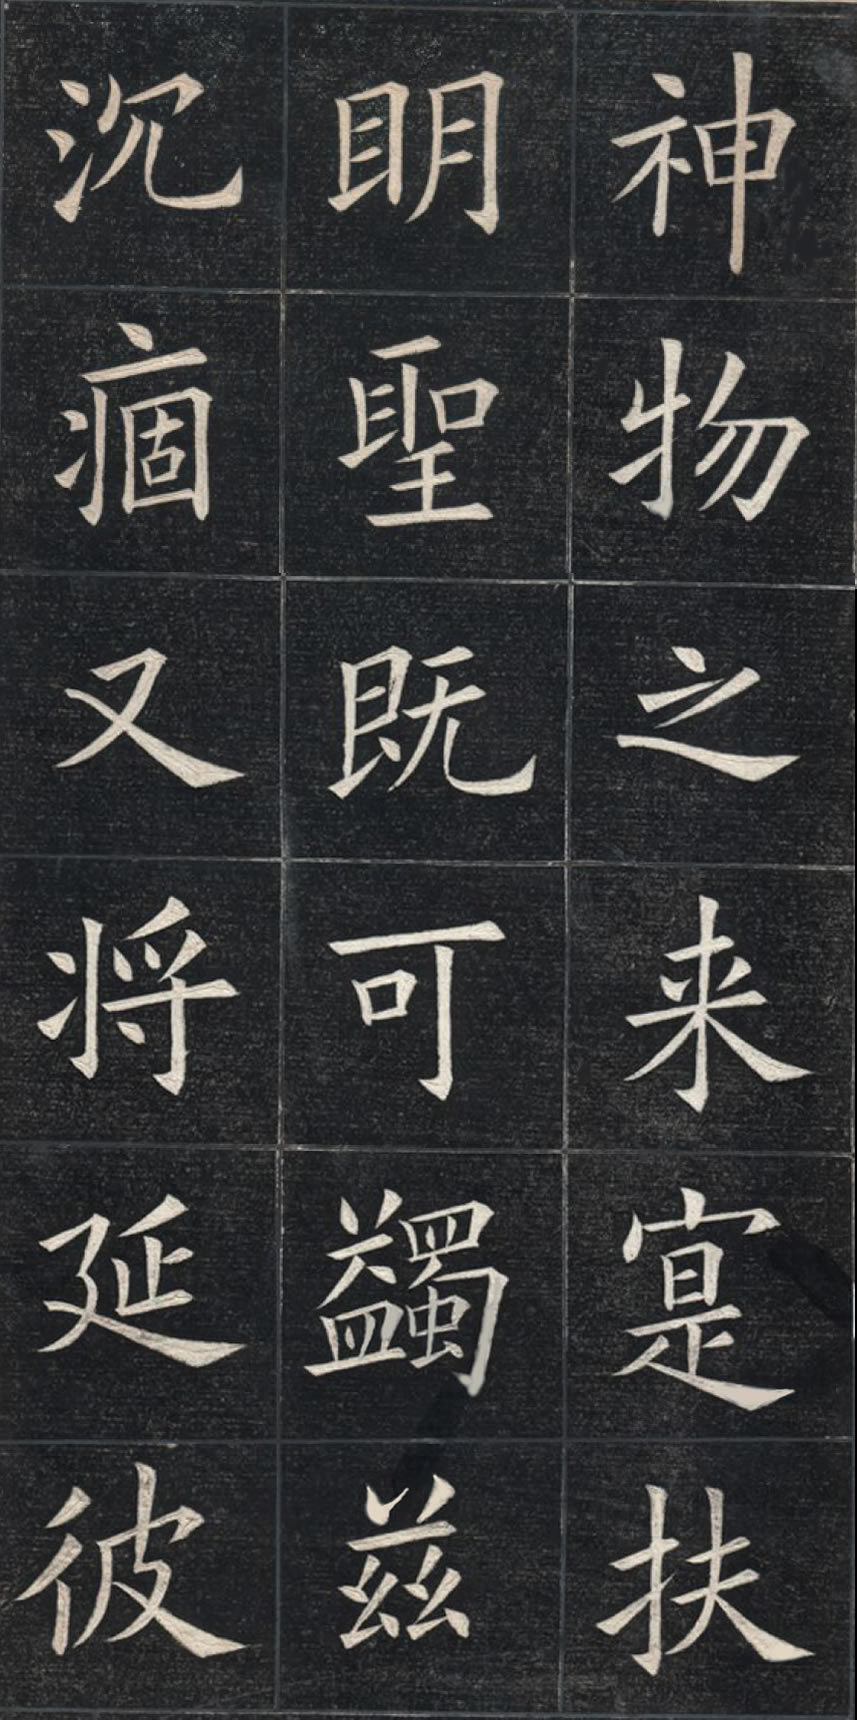 神物之来寔扶
眀聖既可蠲兹
沉痼又将延彼